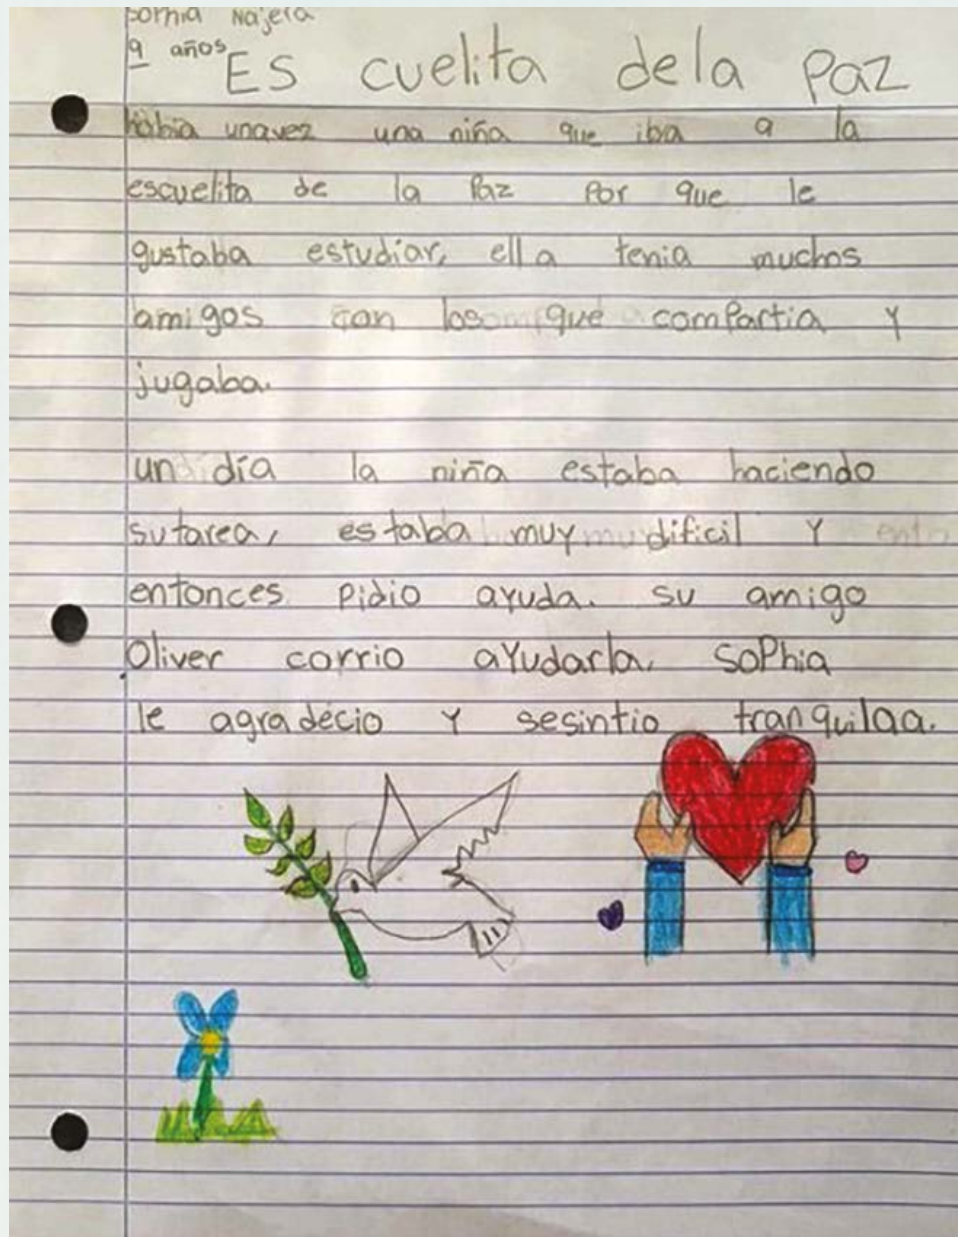 Najera
9 años
ES cuelita dela Paz
había unavez una niña que iba a la
escuelita de la Paz Por que le
gustaba estudiar, ella tenia muchos
amigos con los que compartia y
jugaba.
un día la niña estaba haciendo
sutarea, estaba muy dificil Y
entonces Pidio ayuda. su amigo
Oliver corrio aYudarla. SoPhia
le agradecio Y sesintio tranquilaa.